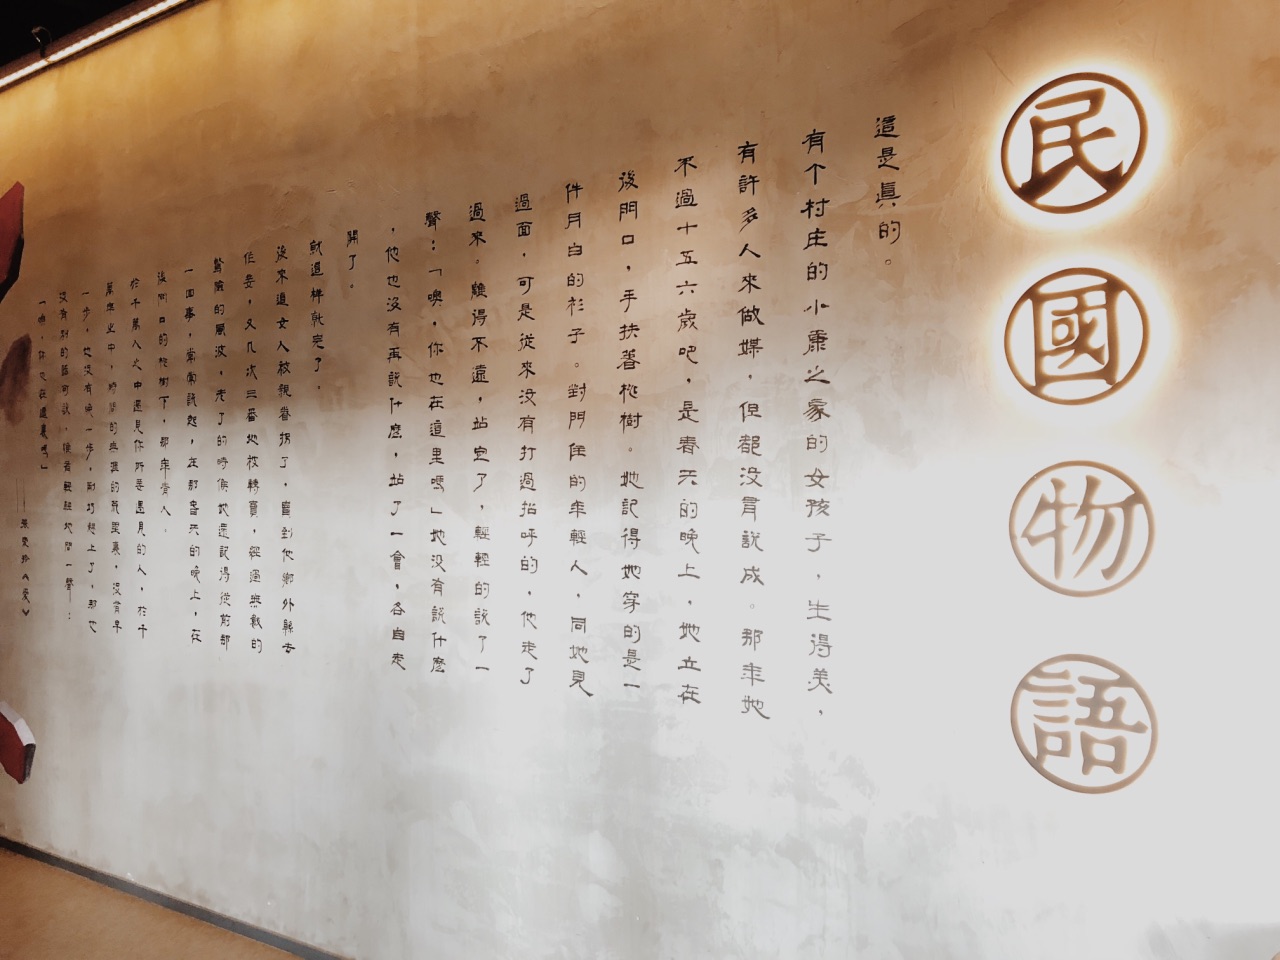 民國物語
這是眞的。
有个村庄的小康之家的女孩子，生得美，
有許多人來做媒，但都没有說成。那年她
不過十五六歲吧，是春天的晚上，她立在
後門口，手扶着桃樹。她記得她穿的是一
件月白的衫子。對門住的年輕人，同她見
過面，可是從來没有打過招呼的，他走了
過來。離得不遠，站定了，輕輕的說了一
聲：「噢，你也在這里嗎」她没有說什麼
，他也没有再説什麼，站了一會，各自走
開了。
就這樣就完了。
後來這女人被親眷拐了，賣到他鄉外縣去
作妾，又几次三番地被轉賣，經過無數的
驚險的風波，老了的時候她還記得從前那
一回事，常常説起，在那春天的晚上，在
後門口的桃樹下，那年青人。
於千萬人之中遇見你所要遇見的人，於千
萬年之中，時間的無涯的荒野裏，没有早
一步，也没有晚一步，剛巧趕上了，那也
没有别的話可説，惟有輕輕地問一聲：
「噢，你也在這裏嗎」
——張愛玲《愛》